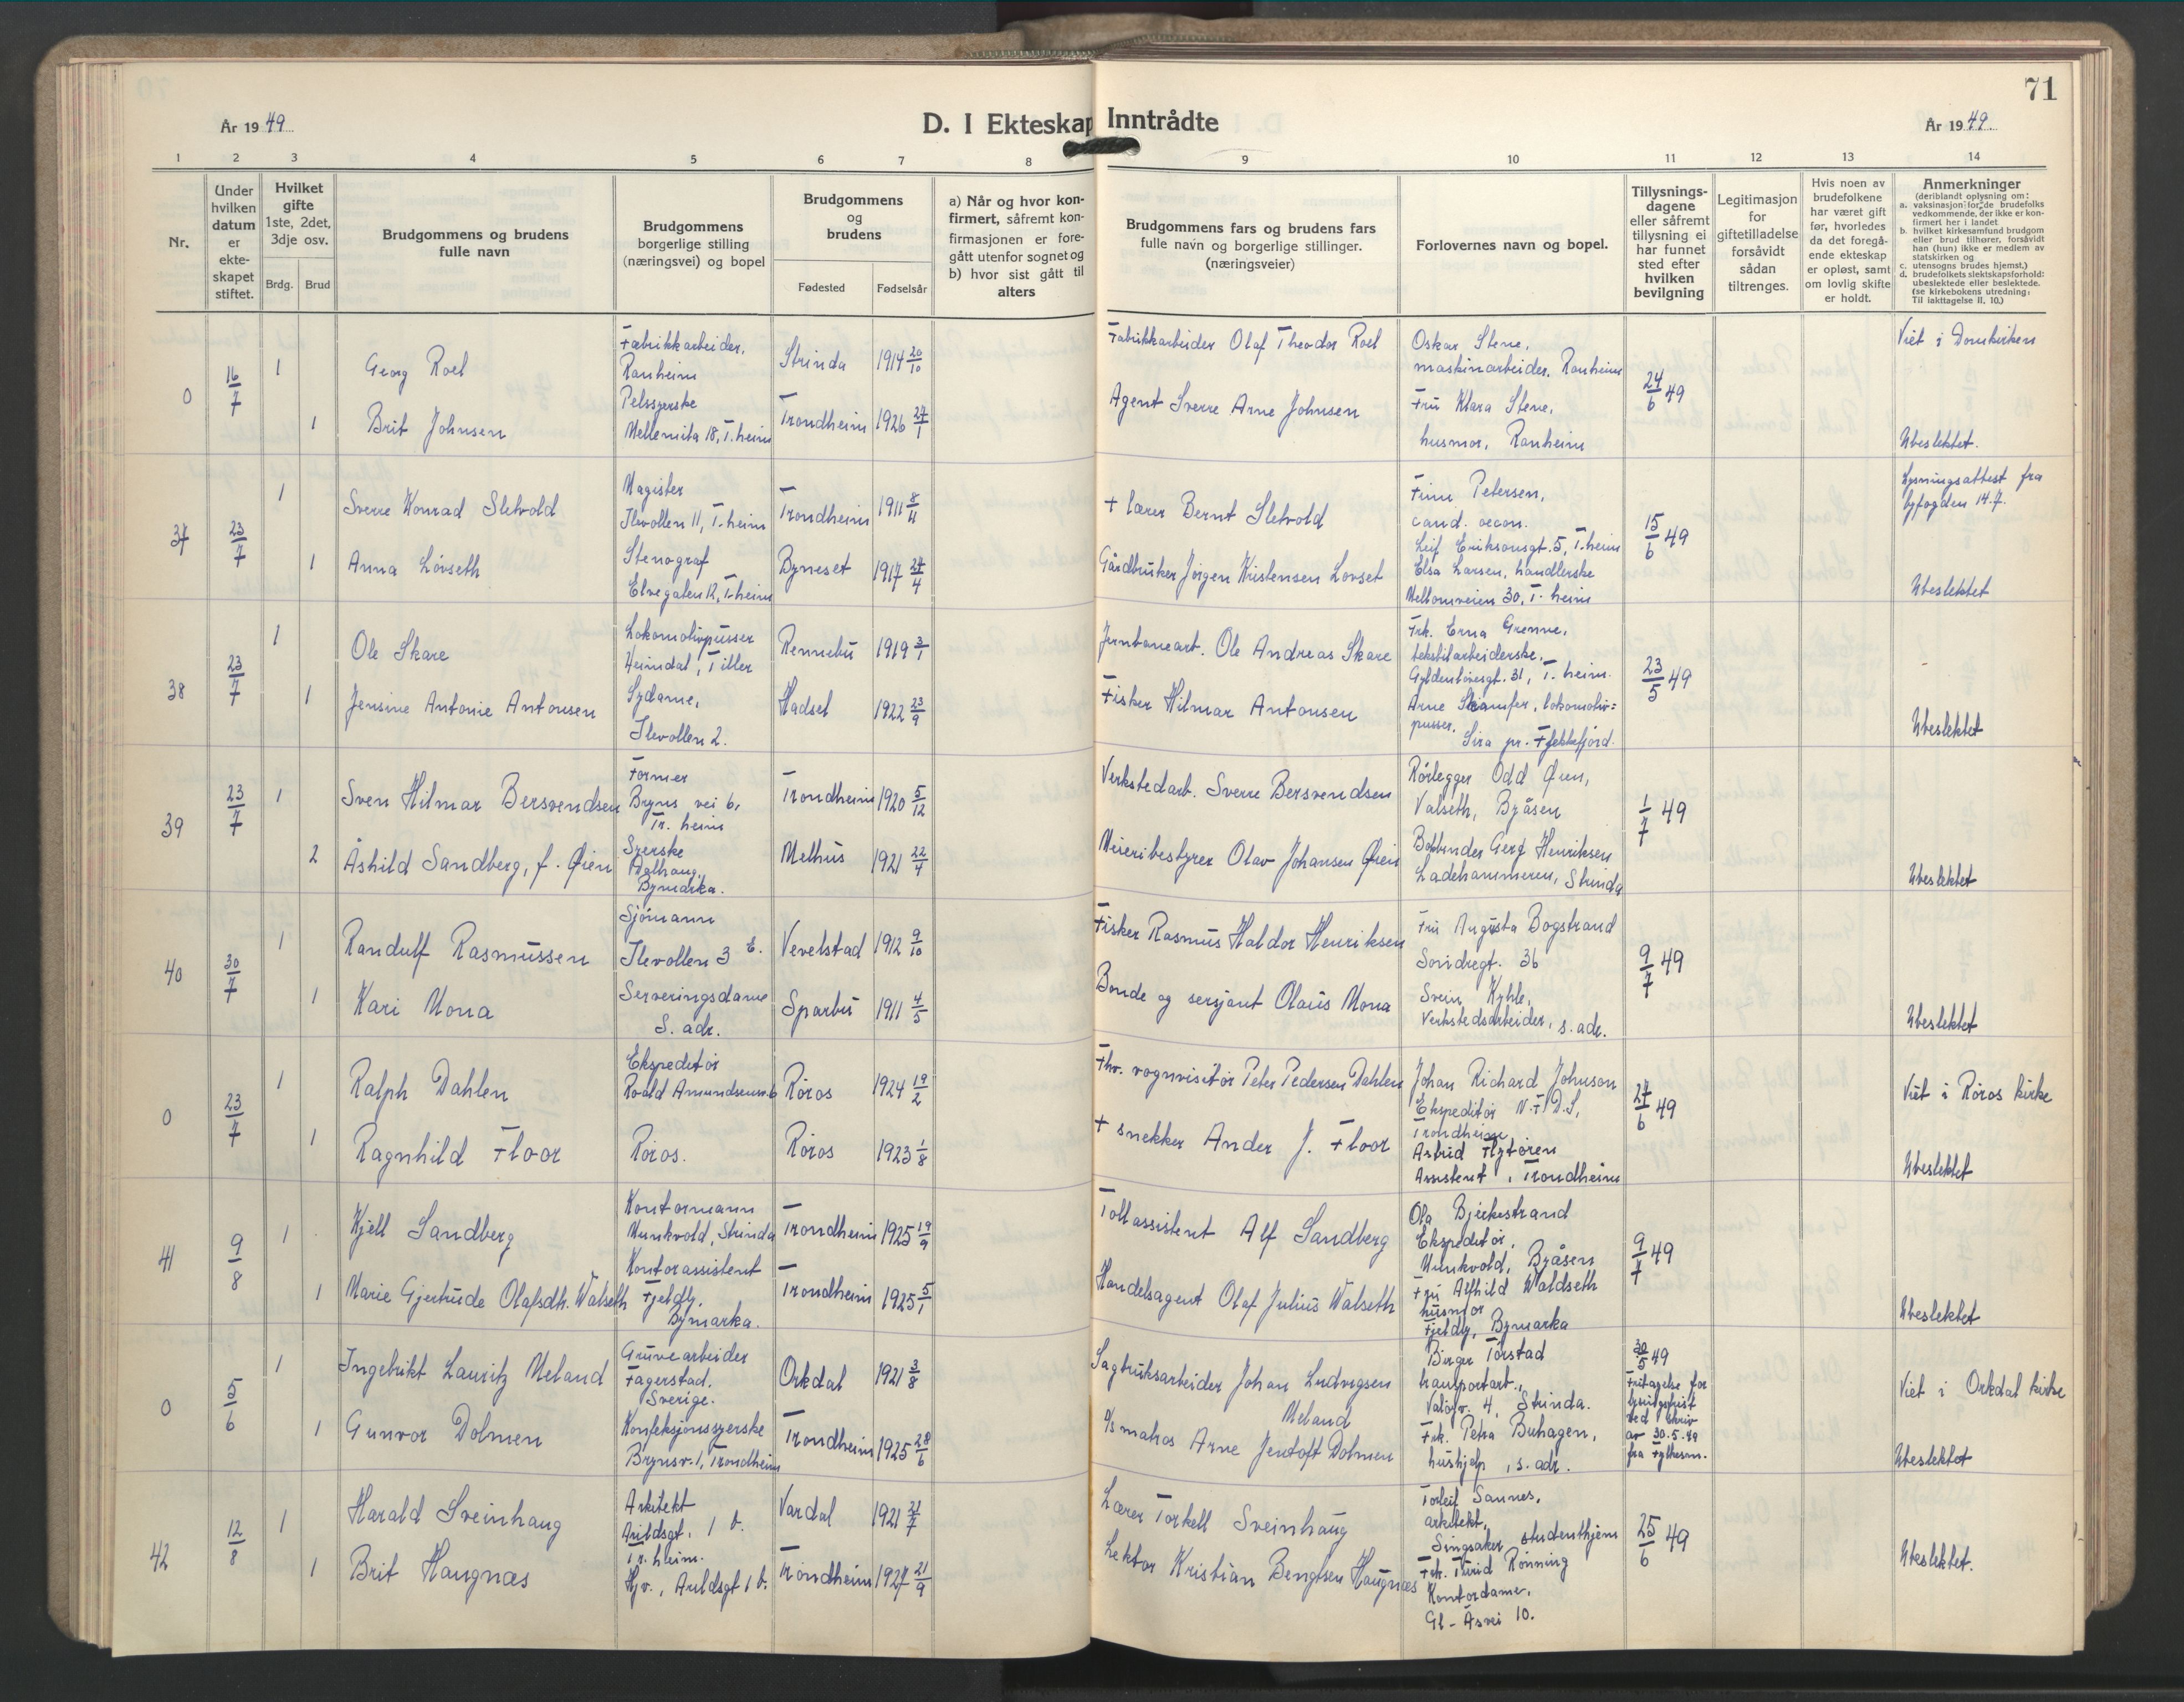 71
År 1949.
D. I Ekteskap Inntrådte
År 1949.
1 2 3 4 5 6 7 8 9 10 11 12 13 14
Nr.
Under hvilken datum er ekteskapet stiftet.
Hvilket gifte 1ste, 2det, 3dje osv.
Brdg. Brud
Brudgommens og brudens fulle navn
Brudgommens borgerlige stilling (næringsvei) og bopel
Brudgommens og brudens
Fødested Fødselsår
a) Når og hvor konfirmert, såfremt konfirmasjonen er foregått utenfor sognet og b) hvor sist gått til alters
Brudgommens fars og brudens fars fulle navn og borgerlige stillinger. (næringsveier)
Forlovernes navn og bopel.
Tillysningsdagene eller såfremt tillysning ei har funnet sted efter hvilken bevilgning
Legitimasjon for giftetilladelse forsåvidt sådan tiltrenges.
Hvis noen av brudefolkene har været gift før, hvorledes da det foregående ekteskap er opløst, samt om lovlig skifte er holdt.
Anmerkninger
(deriblandt oplysning om:
a. vaksinasjon for de brudefolks vedkommende, der ikke er konfirmert her i landet
b. hvilket kirkesamfund brudgom eller brud tilhører, forsåvidt han (hun) ikke er medlem av statskirken og
c. utensogns brudes hjemst.)
d. brudefolkets slektskapsforhold: ubeslektede eller beslektede.
(se kirkebokens utredning: Til iakttagelse II. 10.)
0 16/7 1 Georg Roel Fabrikkarbeider, Ranheim Strinda 1914 20/10 Fabrikkarbeider Olaf Theodor Roel Oskar Stene, maskinarbeider. Ranheim 24/6 49 Viet i Domkirken
1 Brit Johnsen Pelssyerske Mellemila 18, T.heim Trondheim 1926 27/1 Agent Sverre Arne Johnsen Fru Klara Stene, husmor, Ranheim Ubeslektet.
37 23/7 1 Sverre Konrad Sletvold Magister Ilevollen 11, T.heim Trondheim 1911 8/11 + lærer Bernt Sletvold Finn Petersen, cand. oecon. Leif Eriksonsgt. 5, T.heim 15/6 49 Lysningsattest fra byfogden 14.7.
1 Anna Lövseth Stenograf Elvegaten 12, T.heim Byneset 1917 24/4 Gårdbruker Jörgen Kristensen Lovset Elsa Larsen, handlerske Mellomveien 30, T. heim Ubeslektet
38 23/7 1 Ole Skare Lokomotivpusser Heimdal, Tiller Rennebu 1919 3/1 Jernbanearb. Ole Andreas Skare Frk. Erna Grenne, tekstilarbeiderske, Gyldenlövesgt. 31, T. heim. 23/5 49
1 Jensine Antonie Antonsen Sydame, Ilevollen 2. Hadsel 1922 23/9 Fisker Hilmar Antonsen Arne Skamfer, lokomotivpusser, Sira pr. Flekkefjord. Ubeslektet
39 23/7 1 Sven Hilmar Bersvendsen Former Bryns vei 6, Tr. heim Trondheim 1920 5/12 Verkstedarb. Sverre Bersvendsen Rörlegger Odd Øien, Valseth, Byåsen 1/7 49
2 Åshild Sandberg, f. Øien Syerske Dalhaug, Bymarka. Melhus 1921 22/4 Meieribestyrer Olav Johansen Øien Bokbinder Georg Henriksen Ladehammeren, Strinda Ubeslektet
40 30/7 1 Randulf Rasmussen Sjömann Ilevollen 3 b. Vevelstad 1912 9/10 Fisker Rasmus Haldor Henriksen Fru Augusta Bogstrand Sondregt. 3b 9/7 49
1 Kari Mona Serveringsdame S. adr. Sparbu 1911 4/5 Bonde og sersjant Olaus Mona Svein Kyhle, Verkstedsarbeider, s. adr. Ubeslektet
0 23/7 1 Ralph Dahlen Ekspeditör Roald Amundsensv. 6 Röros 1924 19/2 Fhv. vognvisitör Peter Pedersen Dahlen Johan Richard Johnson Ekspeditör N.F.D.S, Trondheim 27/6 49 Viet i Röros kirke
1 Ragnhild Floor Röros. Röros 1923 1/8 + snekker Ander J. Floor Astrid Flytören Assistent, Trondheim Ubeslektet
41 9/8 1 Kjell Sandberg Kontormann Munkvold, Strinda Trondheim 1925 19/9 Tollassistent Alf Sandberg Ola Bjerkestrand Ekspeditör, Munkvold, Byåsen 9/7 49
1 Marie Gjertrude Olafsdtr. Walseth Kontorassistent Fjeldly, Bymarka. Trondheim 1925 5/1 Handelsagent Olaf Julius Walseth Fru Alfhild Waldseth husmor Fjeldly, Bymarka Ubeslektet
0 5/6 1 Ingebrikt Lauritz Meland Gruvearbeider Fagerstad. Sverige. Orkdal 1921 3/8 Sagbruksarbeider Johan Ludvigsen Meland Birger Törstad transportarb., Valøyv. 4, Strinda. 30/5 49 Fritagelse for lysningsfrist ved skriv av 30.5.49 fra Fylkesm. Viet i Orkdal kirke
1 Gunvor Dolmen Konfeksjonssyerske Brynsv. 1, Trondheim Trondheim 1925 28/6 matros Arne Jentoft Dolmen Frk. Petra Buhagen, hushjelp, s. adr. Ubeslektet
42 12/8 1 Harald Sveinhaug Arkitekt Arildsgt. 1 b. Tr. heim. Vardal 1921 21/7 Lærer Torkell Sveinhaug Torleif Sannes, arkitekt, Singsaker studenthjem 25/6 49
1 Brit Haugnæs Hjv., Arildsgt 1 b. Trondheim 1927 21/9 Lektor Kristian Bengtsen Haugnæs Frk. Turid Rönning Kontordame, Gl- Åsvei 10. Ubeslektet.